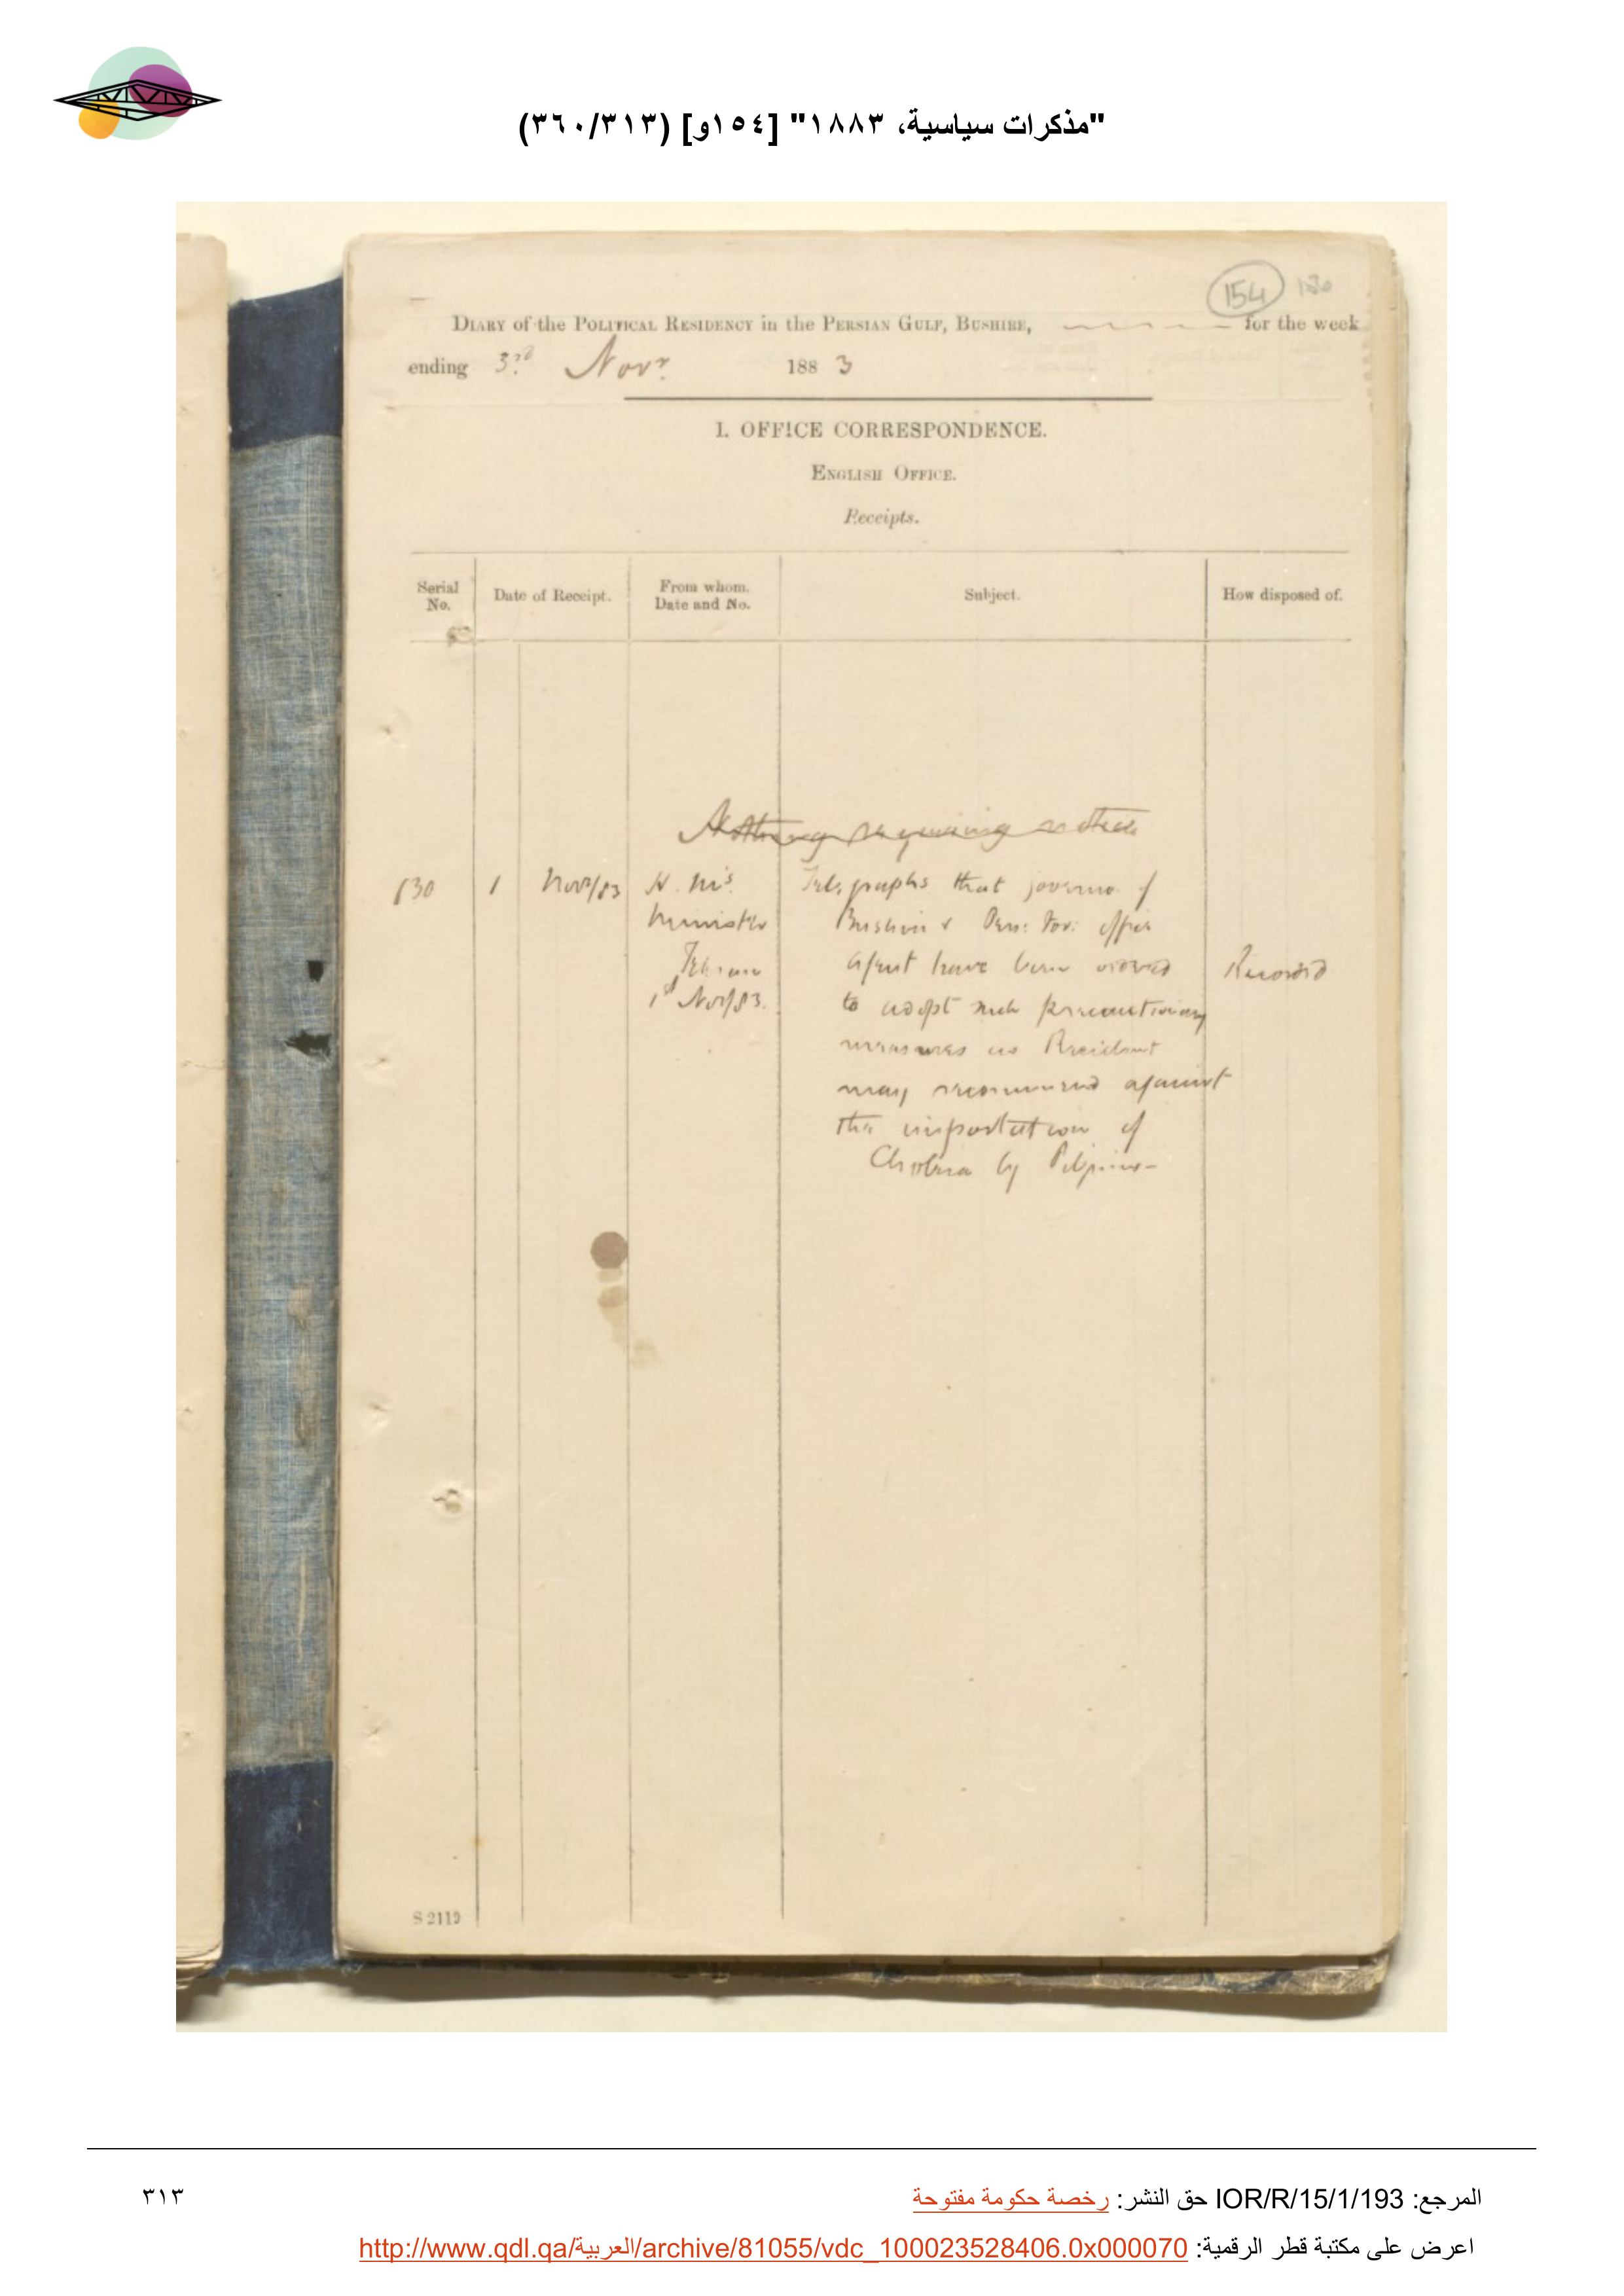 "مذكرات سياسية، ١٨٨٣" [١٥٤و] (٣٦٠/٣١٣)
154
DIARY of the POLITICAL RESIDENCY in the PERSIAN GULF, BUSHIRE, for the week
ending 3rd Novr. 1883
I. OFFICE CORRESPONDENCE.
ENGLISH OFFICE.
Receipts.
Serial No.
Date of Receipt.
From whom. Date and No.
Subject.
How disposed of.
Nothing requiring notice
1 Novr/83
H. M's. Minister Tehran 1st Nov/83.
Telegraphs that governor of
Bushire & Pers: For: Office
Agent have been ordered
to adopt such precautionary
measures as Resident
may recommend against
the importation of
Cholera by Pilgrims-
Recorded
S 2119
المرجع: IOR/R/15/1/193 حق النشر: رخصة حكومة مفتوحة
٣١٣
اعرض على مكتبة قطر الرقمية: http://www.qdl.qa/العربية/archive/81055/vdc_100023528406.0x000070